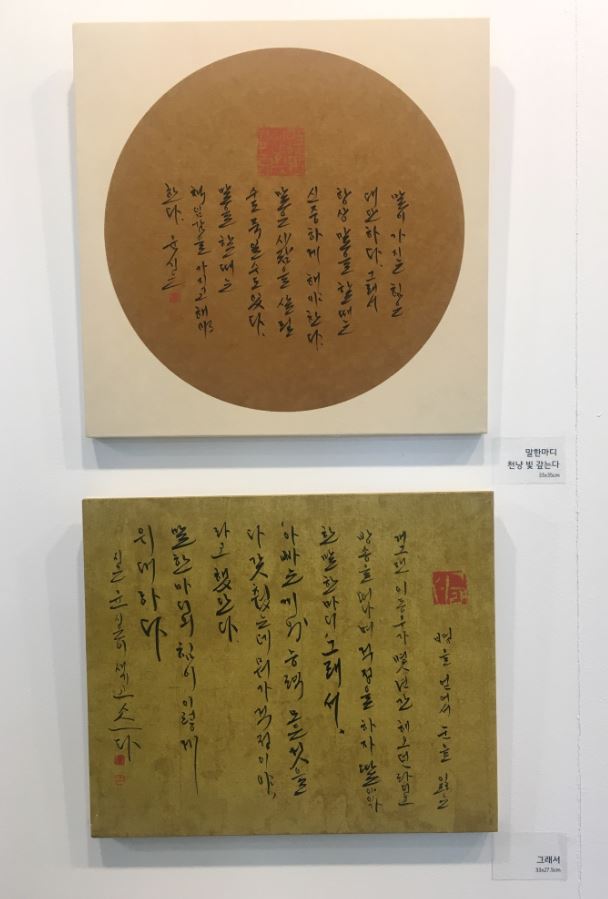 말이 가지는 힘은
대단하다. 그래서
항상 말을 할때는
신중하게 해야 한다.
말은 사람을 살릴
수도 죽일수도 있다.
말을 할 때는
책임감을 가지고 해야
한다.
말한마디
천냥 빚 갚는다
35x35cm
병을 얻어서 눈을 잃은
개그맨 이동우가 몇년간 해오던 라디오
방송을 떠나며 걱정을 하자 딸아이가
한 말 한마디, 그래서,
아빠는 능력 모든 것을
다 갖췄는데 뭐가 걱정이야,
라고 했단다.
말 한마디의 힘이 이렇게
위대하다
쓰다
그래서
33x27.5cm